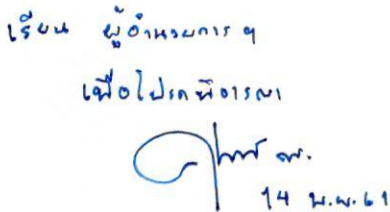 เรียน ผู้อำนวยการ ฯ
เพื่อโปรดพิจารณา
14 พ.ย. 61